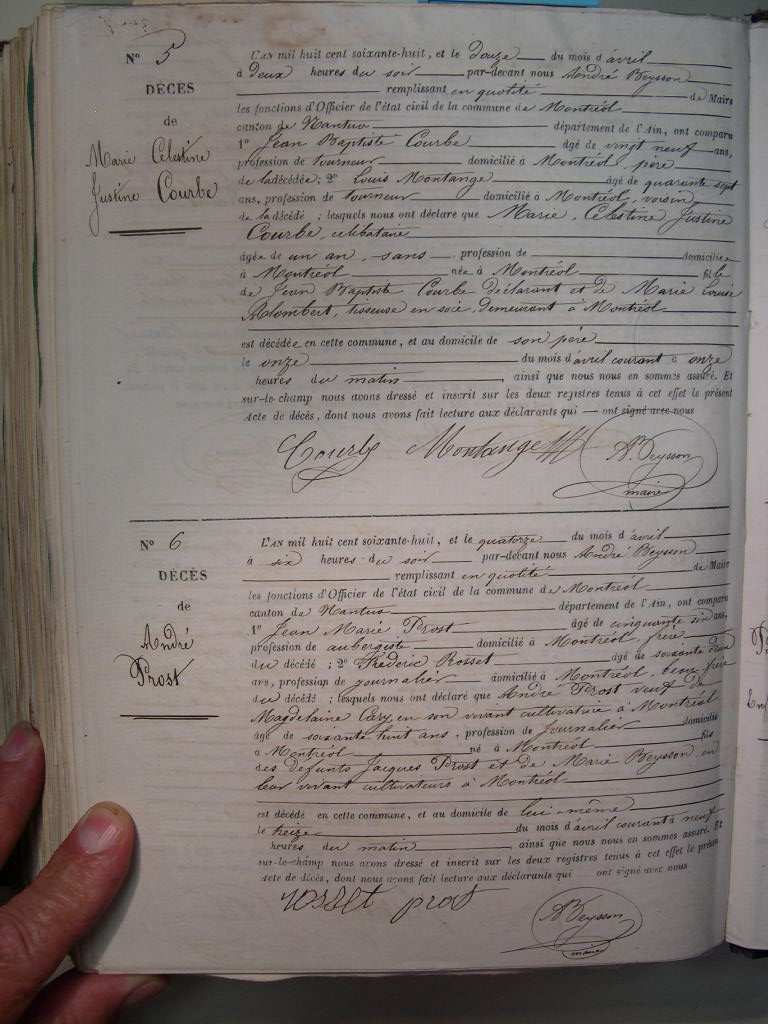 N° 5
DÉCÈS
de
Marie Célestine
Justine Courbe
L'AN mil huit cent soixante-huit, et le douze du mois d'avril
à deux heures du soir par-devant nous André Beysson
remplissant en quotité de Maire
les fonctions d'Officier de l'état civil de la commune de Montréal
canton de Nantua département de l'Ain, ont comparu
1° Jean Baptiste Courbe âgé de vingt neuf ans,
profession de tourneur domicilié à Montréal, père
de la décédée; 2° Louis Montange âgé de quarante sept
ans, profession de tourneur domicilié à Montréal, voisin
de la décédé ; lesquels nous ont déclaré que Marie, Célestine Justine
Courbe, célibataire
âgée de un an, sans profession de domiciliée
à Montréal née à Montréal fille
de Jean Baptiste Courbe déclarant et de Marie Louise
Alombert, tisseuse en soie, demeurant à Montréal
est décédée en cette commune, et au domicile de son père
le onze du mois d'avril courant à onze
heures du matin, ainsi que nous nous en sommes assuré. Et
sur-le-champ nous avons dressé et inscrit sur les deux registres tenus à cet effet le présent
acte de décès, dont nous avons fait lecture aux déclarants qui ont signé avec nous
Courbe Montange A. Beysson
maire
N° 6
DÉCÈS
de
André
Prost
L'AN mil huit cent soixante-huit, et le quatorze du mois d'avril
à six heures du soir par-devant nous André Beysson
remplissant en quotité de Maire
les fonctions d'Officier de l'état civil de la commune de Montréal
canton de Nantua département de l'Ain, ont comparu
1° Jean Marie Prost âgé de cinquante six ans,
profession de aubergiste domicilié à Montréal, frère
du décédé ; 2° Fréderic Rosset âgé de soixante
ans, profession de journalier domicilié à Montréal, beau frère
du décédé ; lesquels nous ont déclaré que André Prost veuf de
Magdelaine en son vivant cultivateur à Montréal
âgé de soixante huit ans, profession de Journalier domicilié
à Montréal né à Montréal fils
des défunts Jacques Prost et de Marie Beysson en
leur vivant cultivateurs à Montréal
est décédé en cette commune, et au domicile de lui-même
le treize du mois d'avril courant à neuf
heures du matin ainsi que nous nous en sommes assuré. Et
sur-le-champ nous avons dressé et inscrit sur les deux registres tenus à cet effet le présent
acte de décès, dont nous avons fait lecture aux déclarants qui ont signé avec nous
rosset prost A Beysson
maire